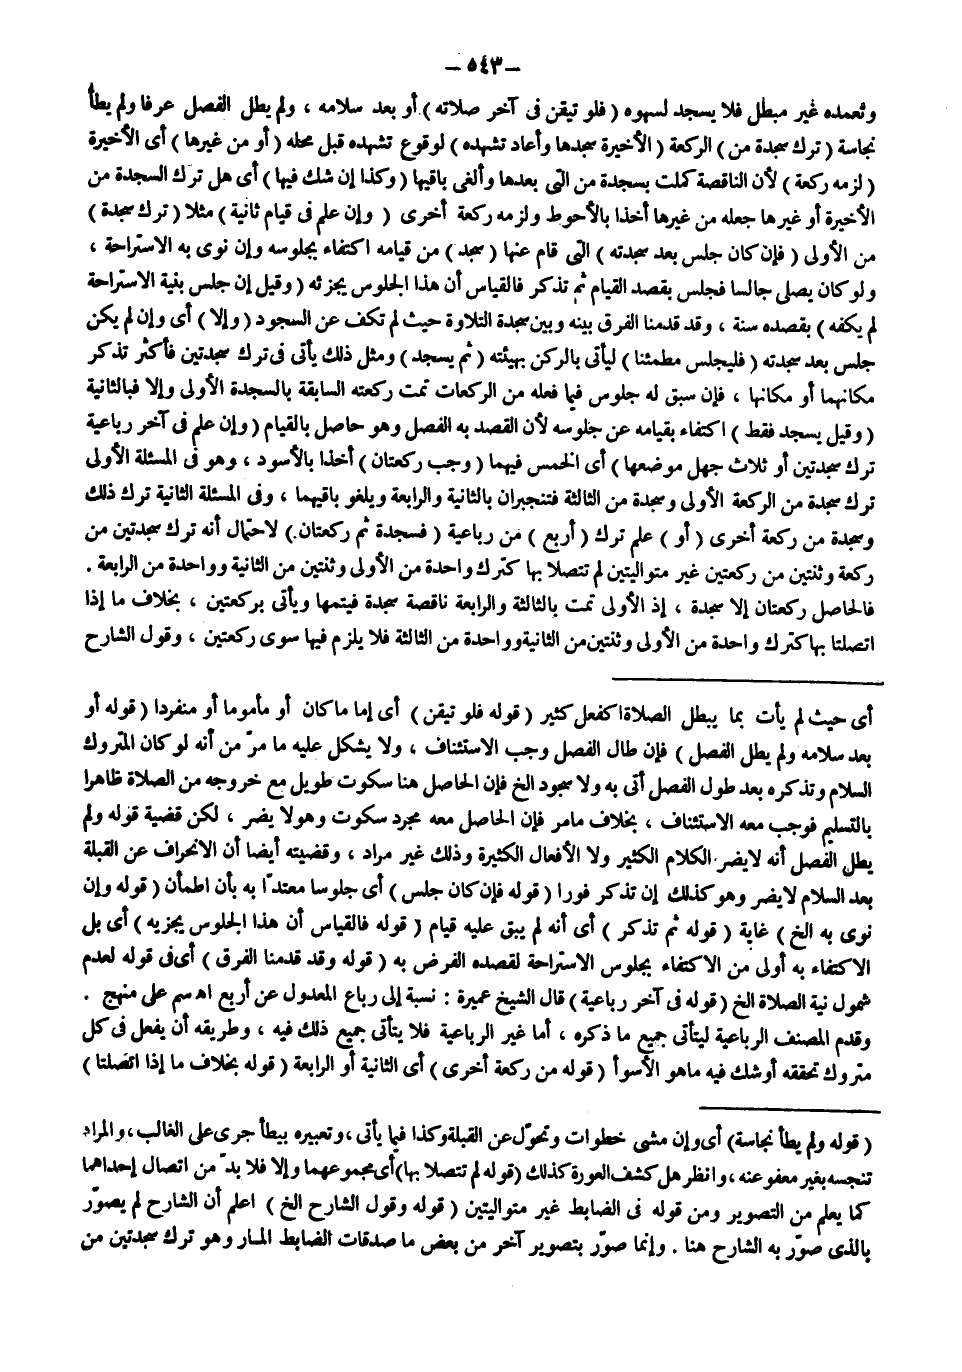 – ٥٤٣ –
وتعمده غير مبطل فلا يسجد لسهوه ( فلو تيقن فى آخر صلاته ) أو بعد سلامه ، ولم يطل الفصل عرفا ولم يطأ
نجاسة ( ترك سجدة من ) الركعة ( الأخيرة سجدها وأعاد تشهده ) لوقوع تشهده قبل محله ( أو من غيرها ) أى الأخيرة
( لزمه ركعة ) لأن الناقصة كملت بسجدة من التى بعدها وألغى باقيها ( وكذا إن شك فيها ) أى هل ترك السجدة من
الأخيرة أو غيرها جعله من غيرها أخذا بالأحوط ولزمه ركعة أخرى ( وإن علم فى قيام ثانية ) مثلا ( ترك سجدة )
من الأولى ( فإن كان جلس بعد سجدته ) التى قام عنها ( سجد ) من قيامه اكتفاء بجلوسه وإن نوى به الاستراحة ،
ولو كان يصلى جالسا فجلس بقصد القيام ثم تذكر فالقياس أن هذا الجلوس يجزئه ( وقيل إن جلس بنية الاستراحة
لم يكفه ) بقصده سنة ، وقد قدمنا الفرق بينه وبين سجدة التلاوة حيث لم تكف عن السجود ( وإلا ) أى وإن لم يكن
جلس بعد سجدته ( فليجلس مطمئنا ) ليأتى بالركن بهيئته ( ثم يسجد ) ومثل ذلك يأتى فى ترك سجدتين فأكثر تذكر
مكانهما أو مكانها ، فإن سبق له جلوس فيما فعله من الركعات تمت ركعته السابقة بالسجدة الأولى وإلا فبالثانية
( وقيل يسجد فقط ) اكتفاء بقيامه عن جلوسه لأن القصد به الفصل وهو حاصل بالقيام ( وإن علم فى آخر رباعية
ترك سجدتين أو ثلاث جهل موضعها ) أى الخمس فيهما ( وجب ركعتان ) أخذا بالأسود ، وهو فى المسئلة الأولى
ترك سجدة من الركعة الأولى وسجدة من الثالثة فتنجبران بالثانية والرابعة ويلغو باقيهما ، وفى المسئلة الثانية ترك ذلك
وسجدة من ركعة أخرى ( أو ) علم ترك ( أربع ) من رباعية ( فسجدة ثم ركعتان ) لاحتمال أنه ترك سجدتين من
ركعة وثنتين من ركعتين غير متواليتين لم تتصلا بها كترك واحدة من الأولى وثنتين من الثانية وواحدة من الرابعة .
فالحاصل ركعتان إلا سجدة ، إذ الأولى تمت بالثالثة والرابعة ناقصة سجدة فيتمها ويأتى بركعتين ، بخلاف ما إذا
اتصلتا بها كترك واحدة من الأولى وثنتين من الثانية وواحدة من الثالثة فلا يلزم فيها سوى ركعتين ، وقول الشارح
أى حيث لم يأت بما يبطل الصلاة كفعل كثير ( قوله فلو تيقن ) أى إما ما كان أو مأموما أو منفردا ( قوله أو
بعد سلامه ولم يطل الفصل ) فإن طال الفصل وجب الاستئناف ، ولا يشكل عليه ما مرّ من أنه لو كان المتروك
السلام وتذكره بعد طول الفصل أتى به ولا سجود الخ فإن الحاصل هنا سكوت طويل مع خروجه من الصلاة ظاهرا
بالتسليم فوجب معه الاستئناف ، بخلاف مامر فإن الحاصل معه مجرد سكوت وهو لا يضر ، لكن قضية قوله ولم
يطل الفصل أنه لا يضر الكلام الكثير ولا الأفعال الكثيرة وذلك غير مراد ، وقضيته أيضا أن الانحراف عن القبلة
بعد السلام لا يضر وهو كذلك إن تذكر فورا ( قوله فإن كان جلس ) أى جلوسا معتدّا به بأن اطمأن ( قوله وإن
نوى به الخ ) غاية ( قوله ثم تذكر ) أى أنه لم يبق عليه قيام ( قوله فالقياس أن هذا الجلوس يجزيه ) أى بل
الاكتفاء به أولى من الاكتفاء بجلوس الاستراحة لقصده الفرض به ( قوله وقد قدمنا الفرق ) أى فى قوله لعدم
شمول نية الصلاة الخ ( قوله فى آخر رباعية ) قال الشيخ عميرة : نسبة إلى رباع المعدول عن أربع اهـ سم على منهج .
وقدم المصنف الرباعية ليتأتى جميع ما ذكره ، أما غير الرباعية فلا يتأتى جميع ذلك فيه ، وطريقه أن يفعل فى كل
متروك تحققه أو شك فيه ماهو الأسوأ ( قوله من ركعة أخرى ) أى الثانية أو الرابعة ( قوله بخلاف ما إذا اتصلتا )
( قوله ولم يطأ نجاسة ) أى وإن مشى خطوات وتحوّل عن القبلة وكذا فيما يأتى ، وتعبيره بيطأ جرى على الغالب ، والمراد
تنجسه بغير معفو عنه ، وانظر هل كشف العورة كذلك ( قوله لم تتصلا بها ) أى مجموعهما وإلا فلا بدّ من اتصال إحداهما
كما يعلم من التصوير ومن قوله فى الضابط غير متواليتين ( قوله وقول الشارح الخ ) اعلم أن الشارح لم يصوّر
بالذى صوّر به الشارح هنا . وإنما صوّر بتصوير آخر من بعض ما صدقات الضابط المار وهو ترك سجدتين من